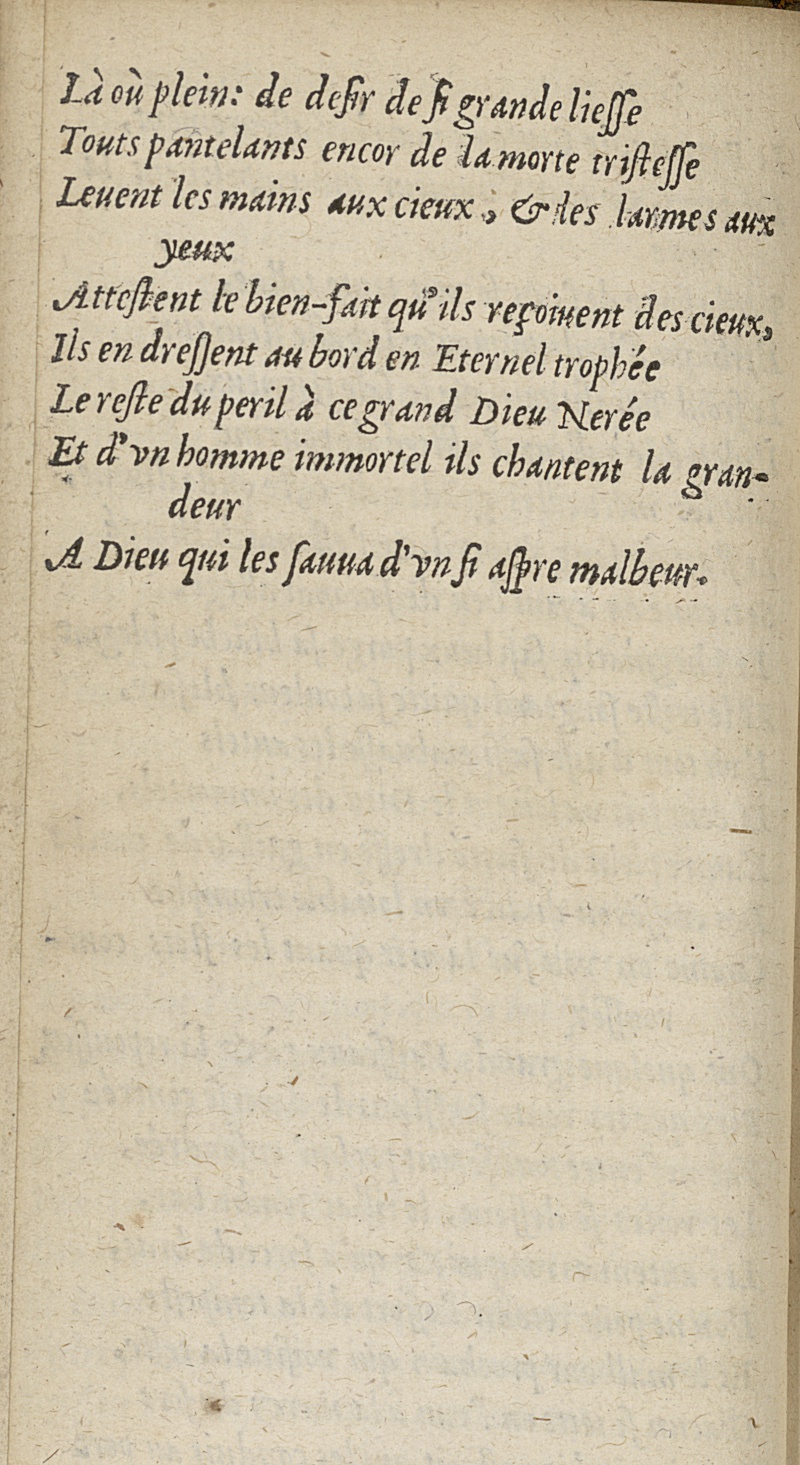 Là où plein: de deſir de ſi grande lieſſe
Touts pantelants encor de la morte triſteſſe
Leuent les mains aux cieux, & les larmes aux
yeux
Atteſtent le bien-fait qu'ils reçoiuent des cieux,
Ils en dreſſent au bord en Eternel trophée
Le reſte du peril à ce grand Dieu Nerée
Et d'vn homme immortel ils chantent la gran-
deur
A Dieu qui les ſauua d'vn ſi aſpre malheur.